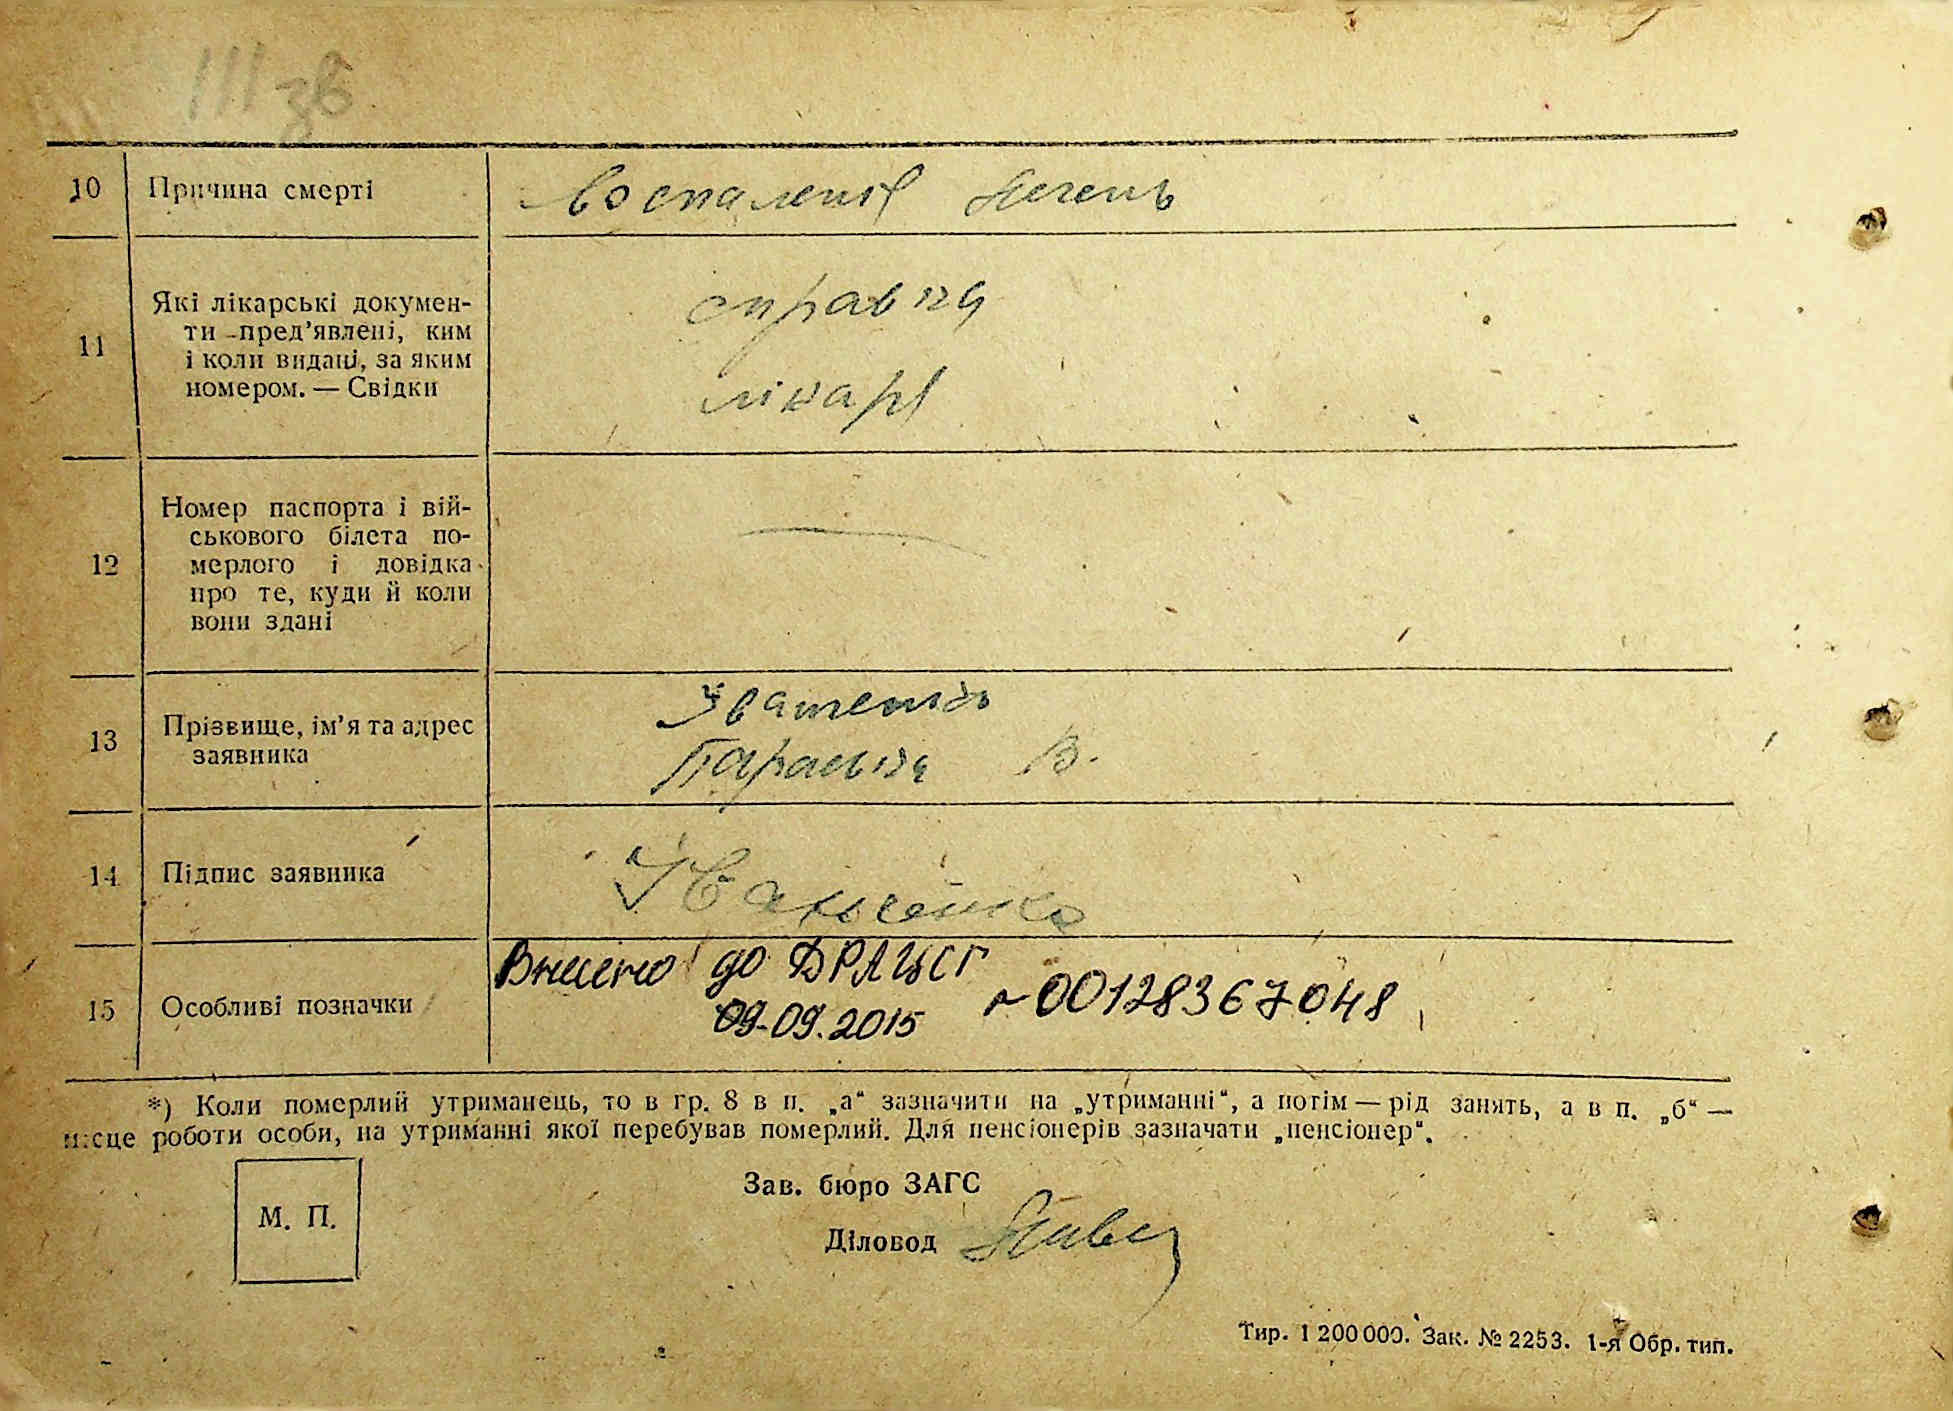 111 зв
10 Причина смерті воспаленія печень
11 Які лікарські докумен-
ти пред'явлені, ким
і коли видані, за яким
номером. — Свідки
справка
лікаря
12 Номер паспорта і вій-
ськового білета по-
мерлого і довідка
про те, куди й коли
вони здані
—
13 Прізвище, ім'я та адрес
заявника
Іватенко
Параска В.
14 Підпис заявника
15 Особливі позначки
Внесено до ДРАЦСГ
09.09.2015 ~00128367048
*) Коли померлий утриманець, то в гр. 8 в п. „а“ зазначити на „утриманні“, а потім — рід занять, а в п. „б“ —
місце роботи особи, на утриманні якої перебував померлий. Для пенсіонерів зазначати „пенсіонер“.
М. П.
Зав. бюро ЗАГС
Діловод
Тир. 1 200 000. Зак. № 2253. 1-я Обр. тип.